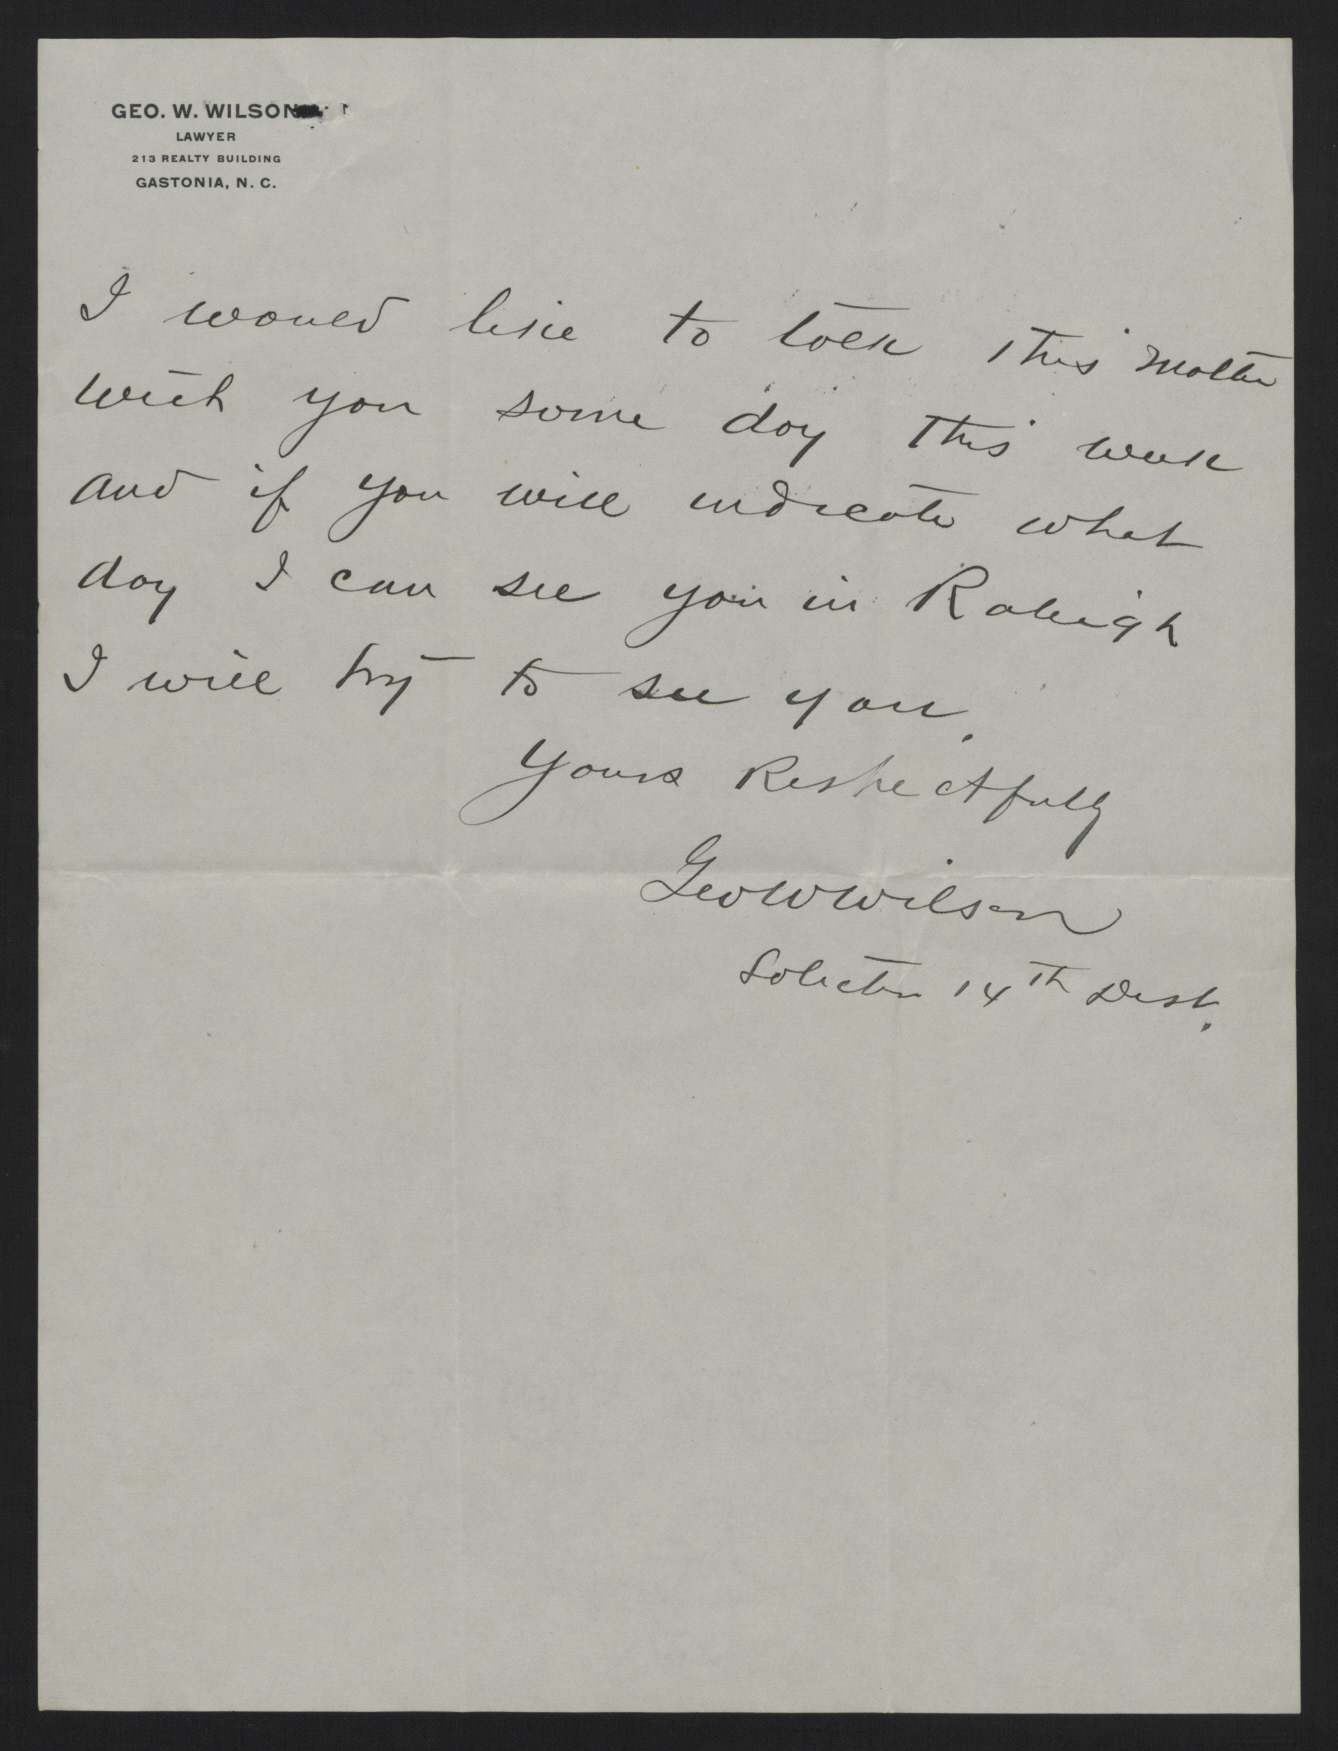 GEO. W. WILSON
LAWYER
213 REALTY BUILDING
GASTONIA, N. C.
I would like to talk this matter
with you some day this week
and if you will indicate what
day I can see you in Raleigh
I will try to see you.
Yours Respectfully
Geo W Wilson
Solicitor 14th Dist.